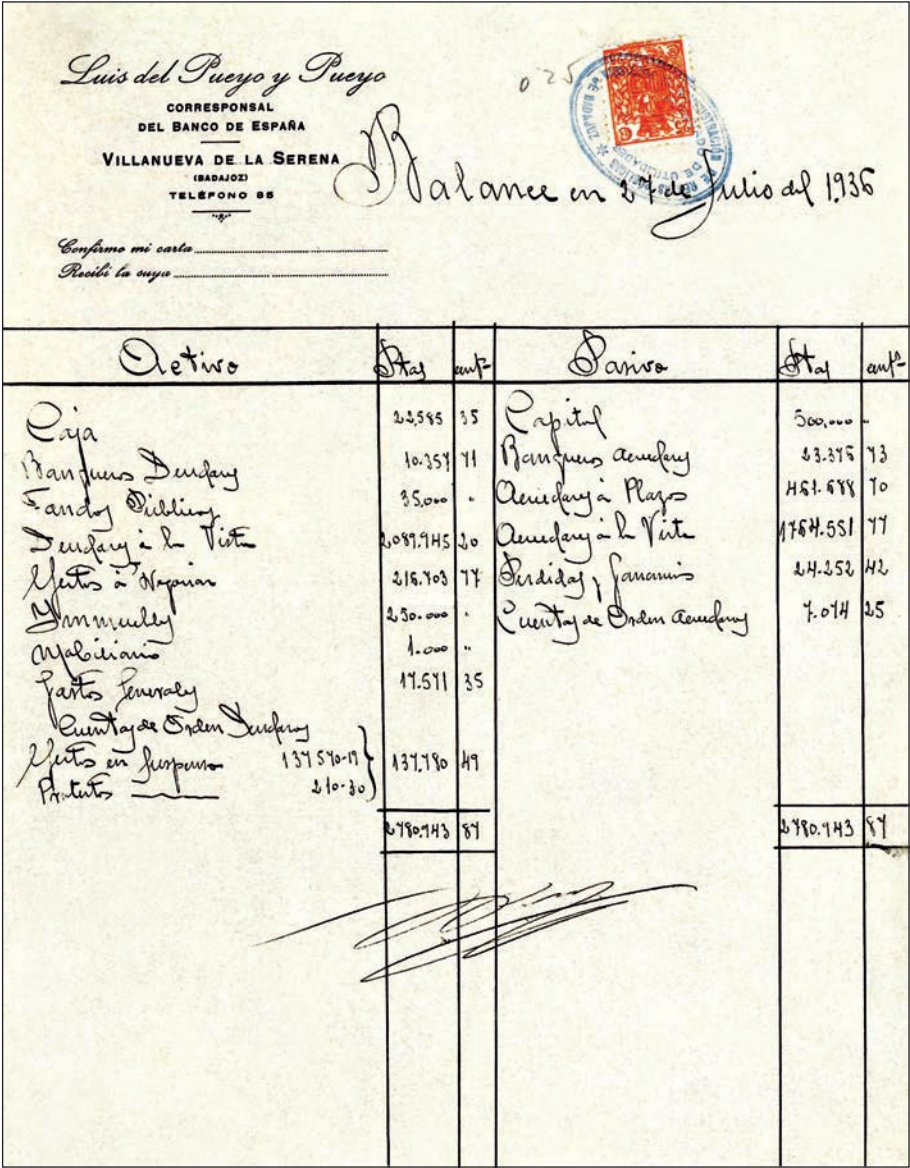 Luis del Pueyo y Pueyo
CORRESPONSAL
DEL BANCO DE ESPAÑA
VILLANUEVA DE LA SERENA
(BADAJOZ)
TELÉFONO 85
Confirmo mi carta
Recibí la suya
025
Balance en 27 de Julio del 1936
Activo Ptas cents Pasivo Ptas cents
Caja 22,585 35 Capital 500,000 "
Banqueros Deudores 10.357 71 Banqueros Acreedores 23.376 73
Fondos Públicos 35,000 " Acreedores à Plazos 461.688 70
Deudores à la Vista 2089.945 20 Acreedores à la Vista 1764.551 77
Efectos à Negociar 216.703 77 Perdidas y Ganancias 24.252 42
Inmuebles 250.000 " Cuentas de Orden Acreedores 7.074 25
Mobiliario 1.000 "
Gastos Generales 17.571 35
Cuentas de Orden Deudoras
Efectos en suspenso 137570-19 137,780 49
Protestos 210-30
2780.943 87 2780.943 87